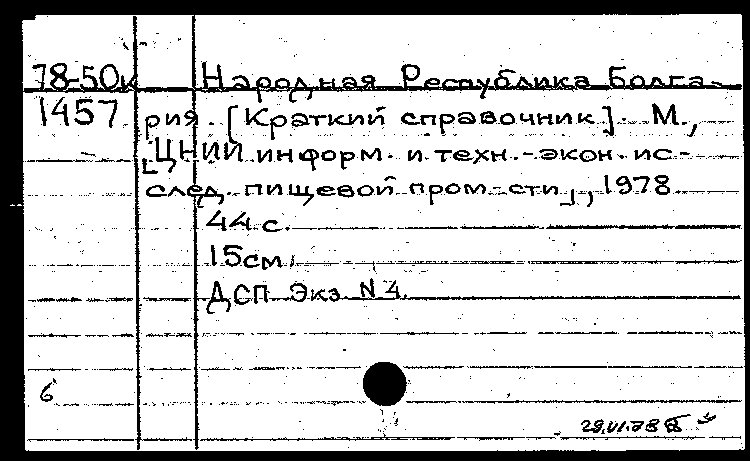 78-50к Народная Республика Болга-
1457 рия. [Краткий справочник]. М.,
[ЦНИИ информ. и техн.-экон. ис-
след. пищевой пром-сти], 1978.
44 с.
15 см.
ДСП Экз. N 4.
6
29.VI.78